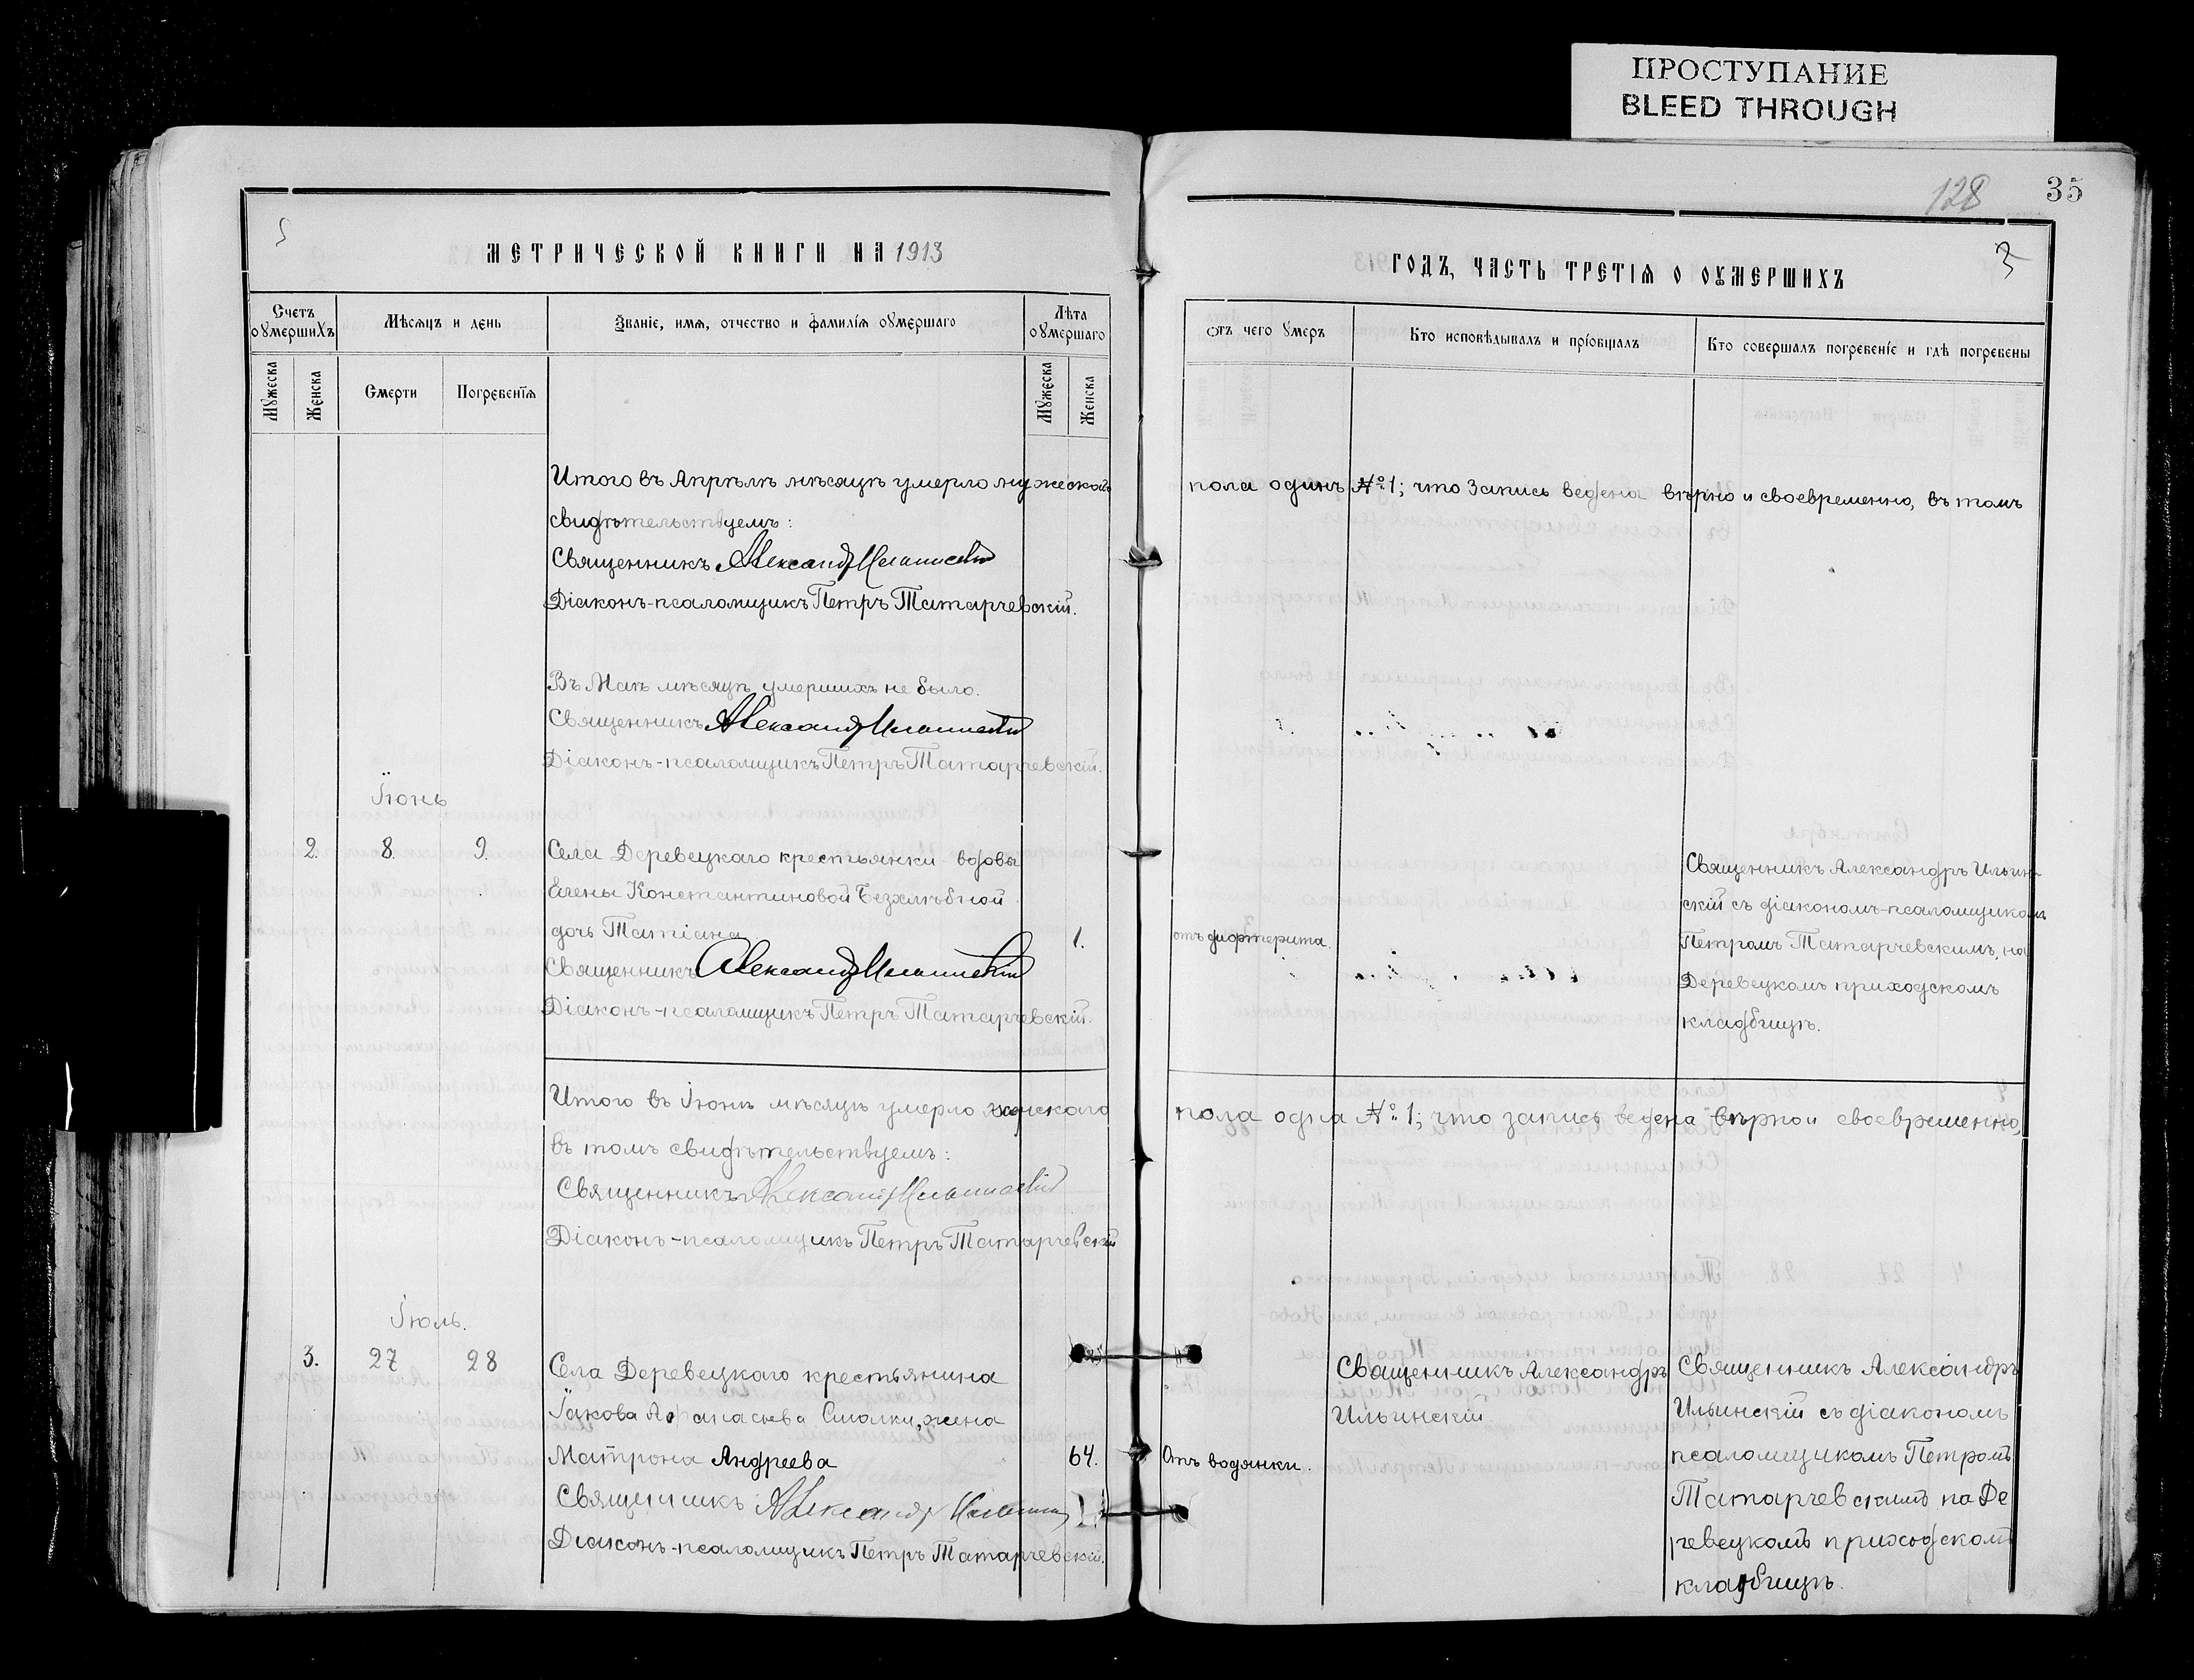 ПРОСТУПАНИЕ
BLEED THROUGH
128
35
МЕТРИЧЕСКОЙ КНИГИ НА 1913
Счетъ оумершихъ
Мѣсяцъ и день
Званіе, имя, отчество и фамилія оумершаго
Лѣта оумершаго
Мужеска
Женска
Смерти
Погребенія
Мужеска
Женска
Итого въ Апрѣлѣ мѣсяцѣ умерло мужескомъ
свидѣтельствуемъ:
Священникъ Александръ Ильинскій
Діаконъ-псаломщикъ Петръ Татарчевскій.
Въ Маѣ мѣсяцѣ умершихъ не было.
Священникъ Александръ Ильинскій
Діаконъ-псаломщикъ Петръ Татарчевскій.
Іюнь
2. 8. 9. Села Деревецкаго крестьянки вдовы
Елены Константиновой Безхлѣбной
дочь Татіана 1.
Священникъ Александръ Ильинскій
Діаконъ-псаломщикъ Петръ Татарчевскій.
Итого въ Іюнѣ мѣсяцѣ умерло женскаго
въ томъ свидѣтельствуемъ:
Священникъ Александръ Ильинскій
Діаконъ-псаломщикъ Петръ Татарчевскій
Іюль.
3. 27 28 Села Деревецкаго крестьянина
Іакова Афанасьева Смалки, жена
Матрона Андреева 64.
Священникъ Александръ Ильинскій
Діаконъ-псаломщикъ Петръ Татарчевскій.
3
ГОДЪ, ЧАСТЬ ТРЕТІЯ О ОУМЕРШИХЪ
отъ чего умеръ
Кто исповѣдывалъ и пріобщалъ
Кто совершалъ погребеніе и гдѣ погребены
пола одинъ №1; что запись ведена вѣрно и своевременно, въ томъ
Священникъ Александръ Ильин-
скій съ діакономъ-псаломщикомъ
отъ дифтерита. Петромъ Татарчевскимъ, на
Деревецкомъ приходскомъ
кладбищѣ.
пола одна №1; что запись ведена вѣрно и своевременно,
Священникъ Александръ
Ильинскій
Отъ водянки.
Священникъ Александръ
Ильинскій съ діакономъ
псаломщикомъ Петромъ
Татарчевскимъ на Де
ревецкомъ приходскомъ
кладбищѣ.